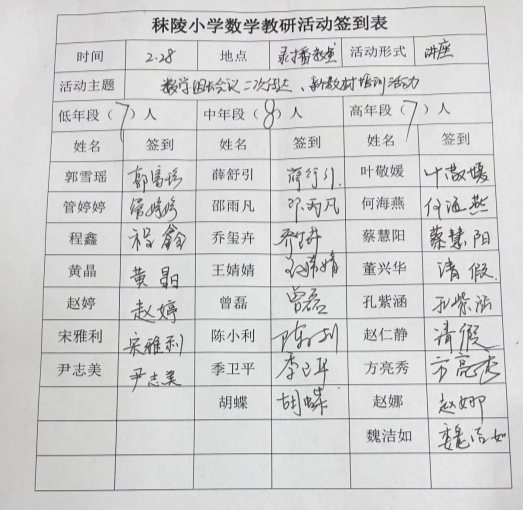 秣陵小学数学教研活动签到表
时间 2.28 地点 录播教室 活动形式 讲座
活动主题 数学组长会议二次传达、新教材培训活动
低年段（7）人 中年段（8）人 高年段（7）人
姓名 签到 姓名 签到 姓名 签到
郭雪瑶 郭雪瑶 薛舒引 薛舒引 叶敬媛 叶敬媛
管婷婷 管婷婷 邵雨凡 邵雨凡 何海燕 何海燕
程鑫 程鑫 乔玺卉 乔玺卉 蔡慧阳 蔡慧阳
黄晶 黄晶 王婧婧 王婧婧 董兴华 请假
赵婷 赵婷 曾磊 曾磊 孔紫涵 孔紫涵
宋雅利 宋雅利 陈小利 陈小利 赵仁静 请假
尹志美 尹志美 季卫平 季卫平 方亮秀 方亮秀
胡蝶 胡蝶 赵娜 赵娜
魏洁如 魏洁如